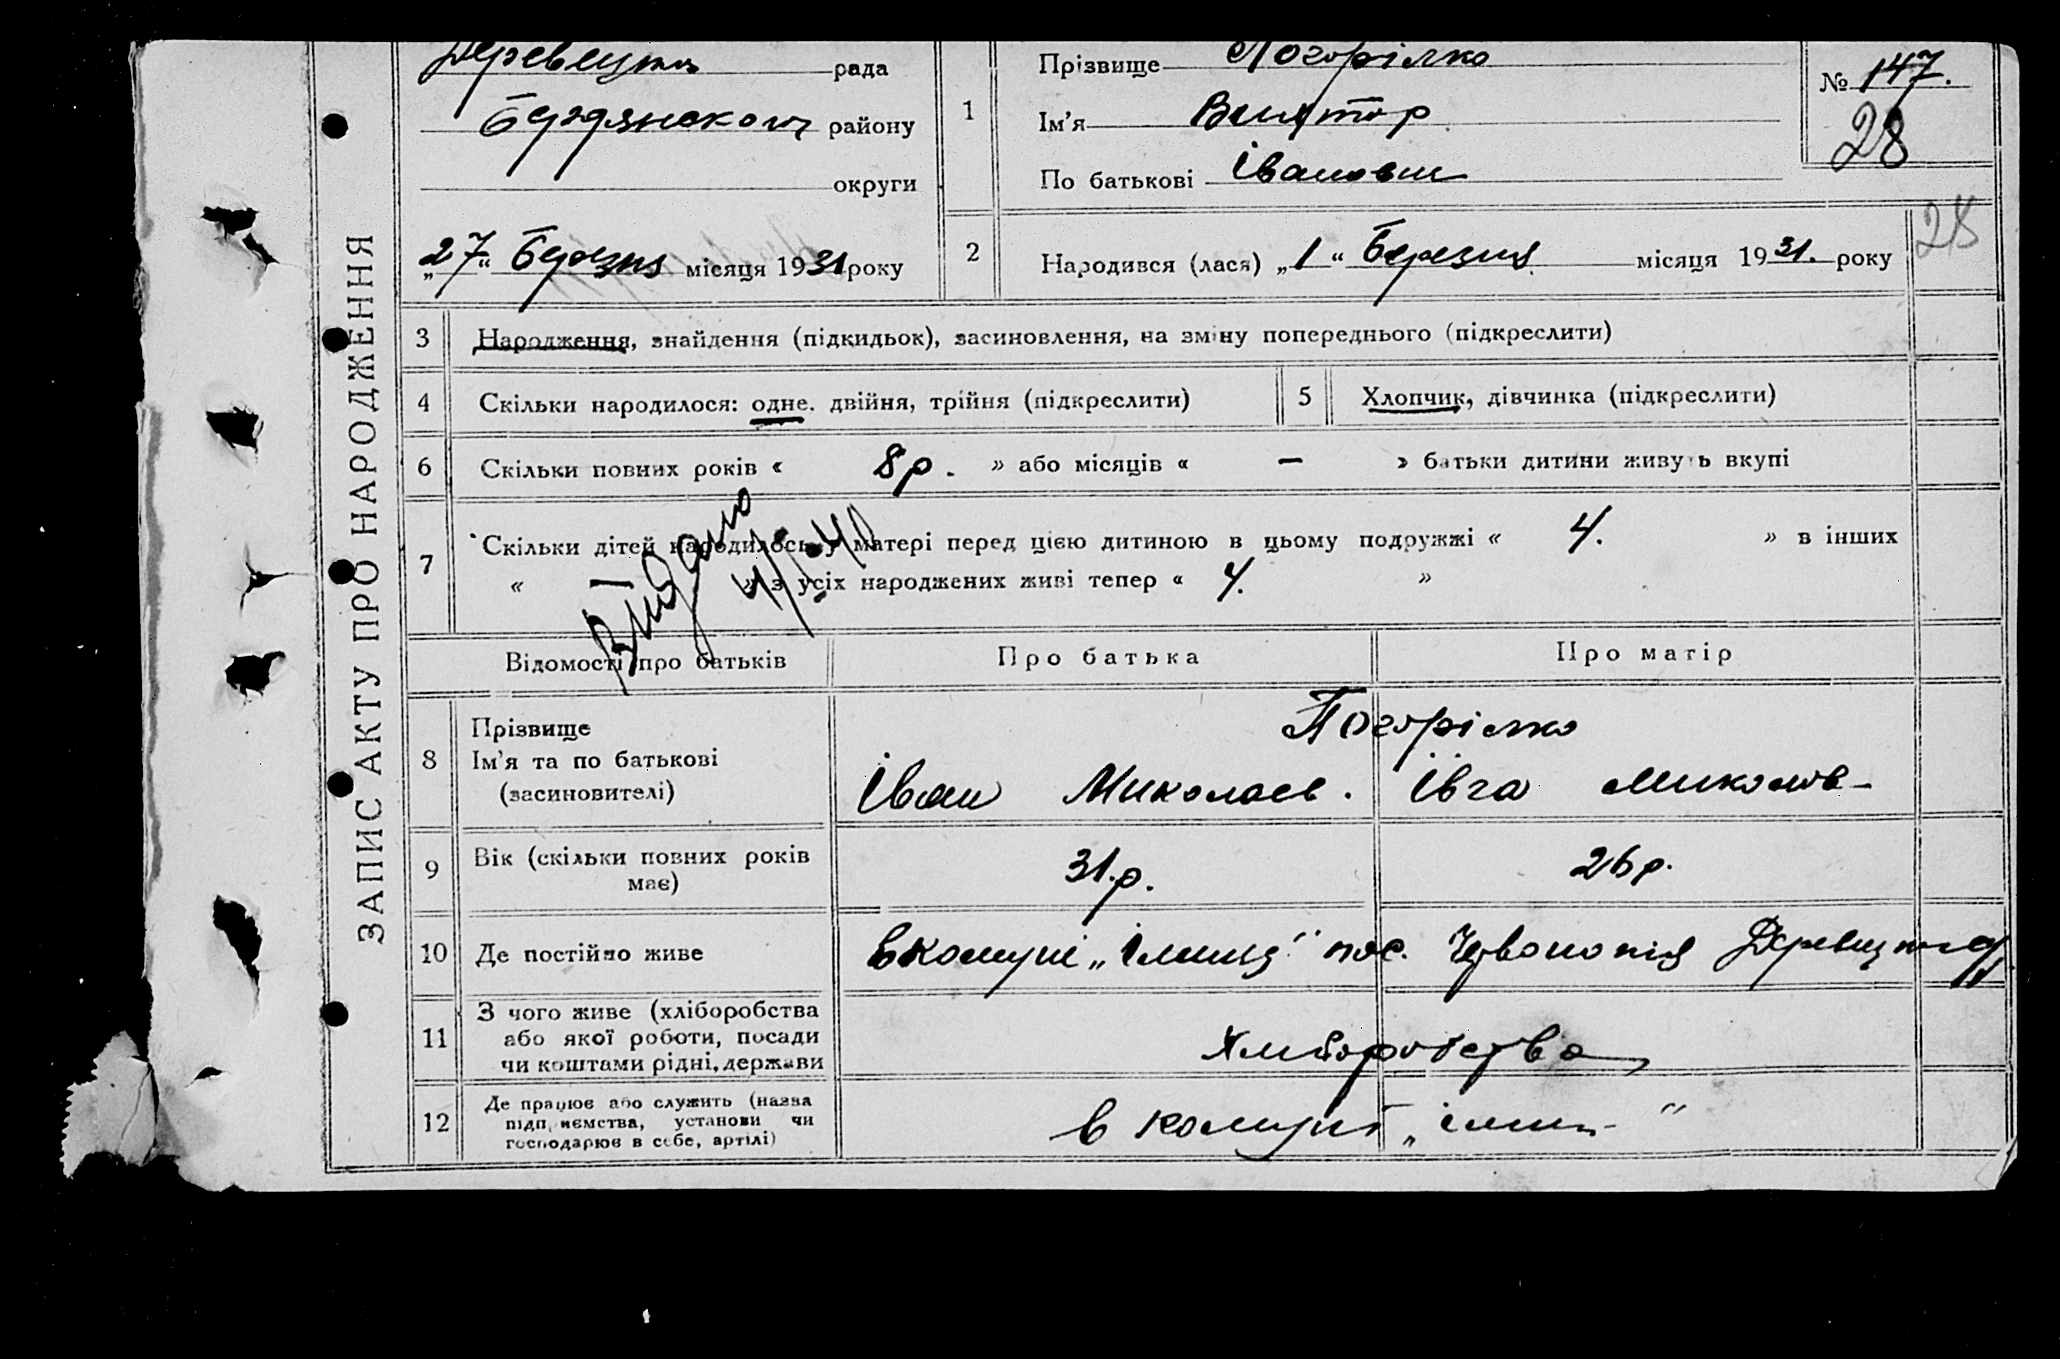 рада
Бердянского району
округи
„27“ Березня місяця 1931 року
1
Прізвище Погорілко
Ім’я Виктор
По батькові Іванович
№ 147.
28
28
2
Народився (лася) „1“ Березня місяця 1931. року
ЗАПИС АКТУ ПРО НАРОДЖЕННЯ
3 Народження, знайдення (підкидьок), засиновлення, на зміну попереднього (підкреслити)
4 Скільки народилося: одне. двійня, трійня (підкреслити)
5 Хлопчик, дівчинка (підкреслити)
6 Скільки повних років « 8 р. » або місяців « — » батьки дитини живуть вкупі
7 Скільки дітей народилось у матері перед цією дитиною в цьому подружжі « 4. » в інших
« — » з усіх народжених живі тепер « 4. »
Видано
Відомості про батьків
Про батька
Про матір
8 Прізвище
Ім’я та по батькові
(засиновителі)
Погорілко
Іван Миколаєв.
Івга Миколов-
9 Вік (скільки повних років
має)
31.р.
26 р.
10 Де постійно живе
в комуні „Ілліча“ пос. Червоно
11 З чого живе (хліборобства
або якої роботи, посади
чи коштами рідні, держави
Хлиборобства
12 Де працює або служить (назва
підприємства, установи чи
господарює в себе, артілі)
в комуні